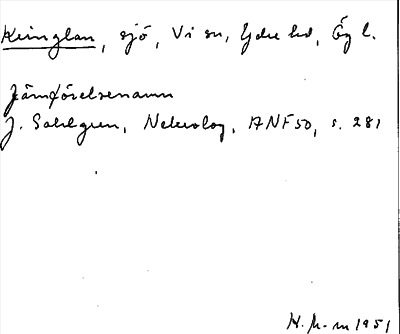 Kringlan, sjö, Vi sn, Ydre hd, Ög l.
Jämförelsenamn
J. Sahlgren, Nekrolog, ANF 50, s. 281
H. M-m 1951